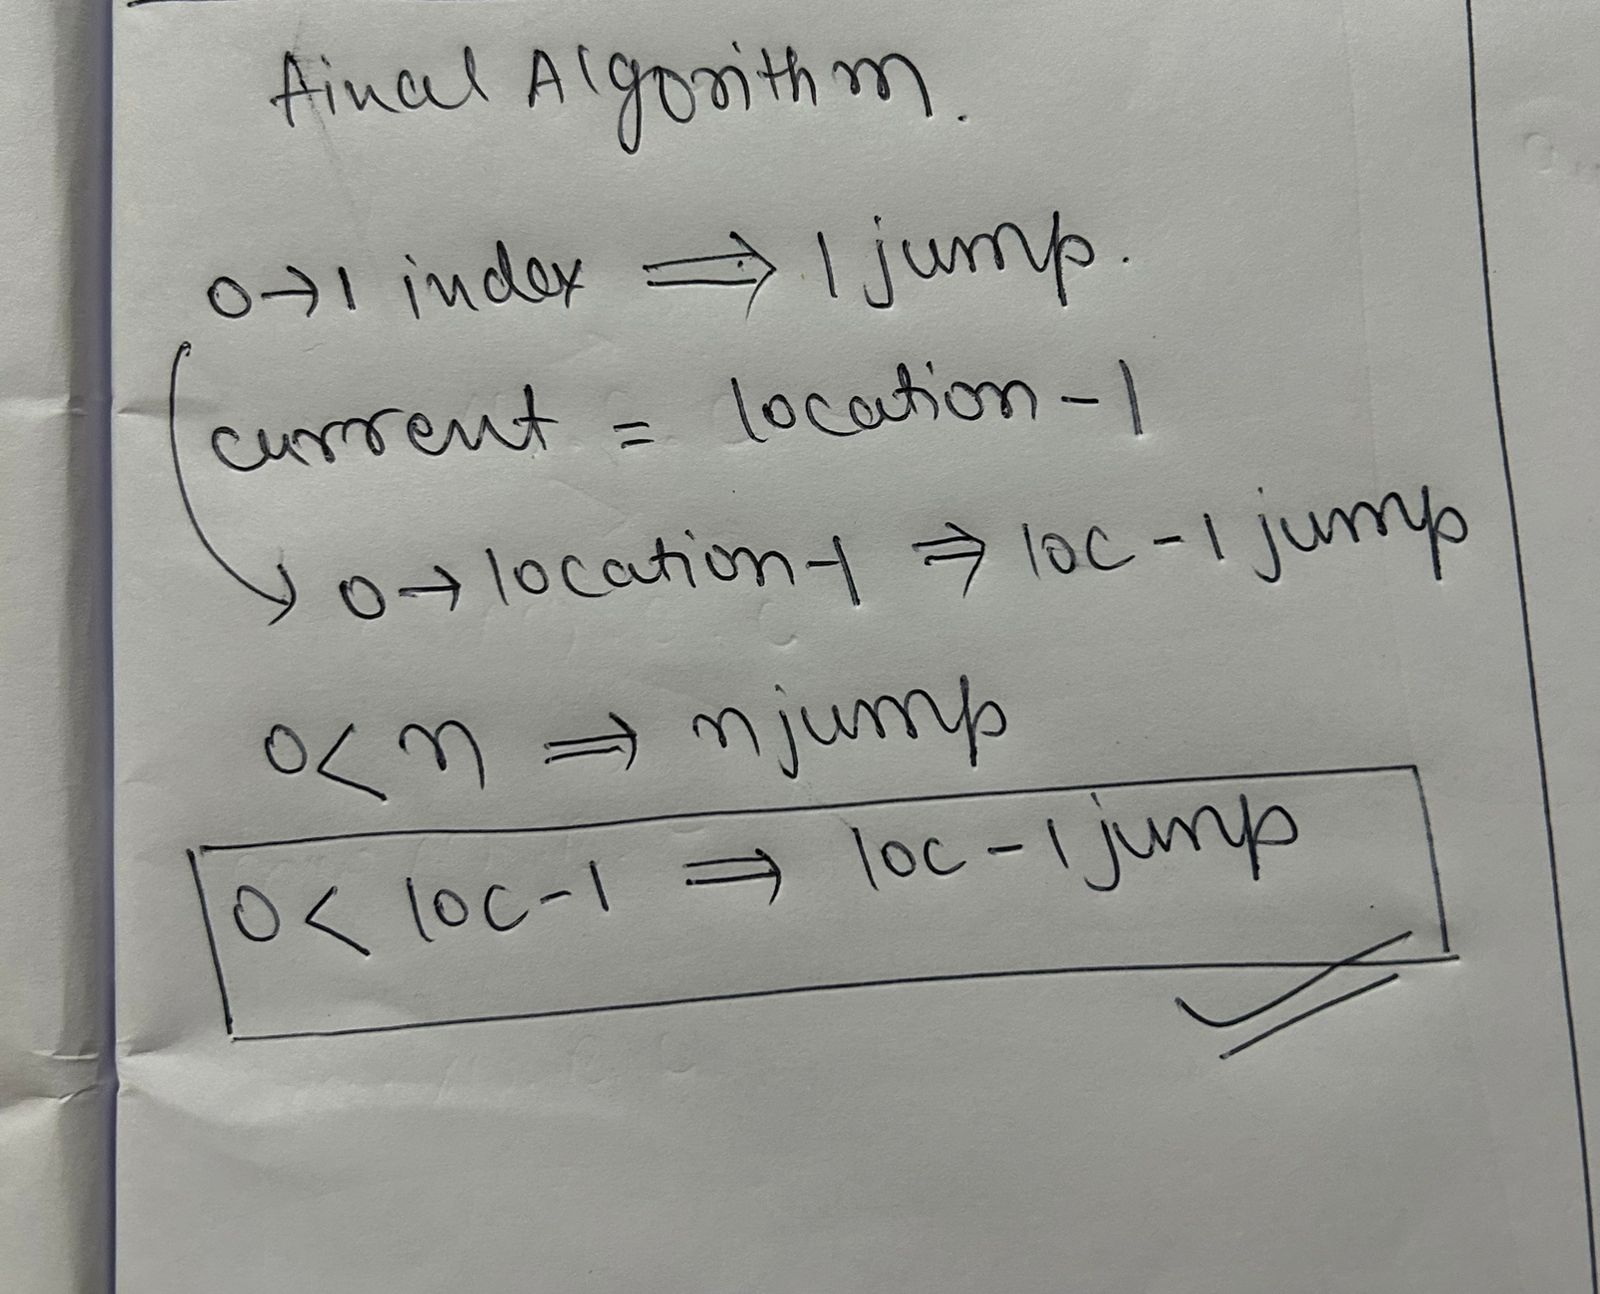 Final Algorithm.
0→1 index ⟹ 1 jump.
current = location-1
0→location-1 ⇒ loc-1 jump
0< n ⟹ n jump
0< loc-1 ⟹ loc-1 jump